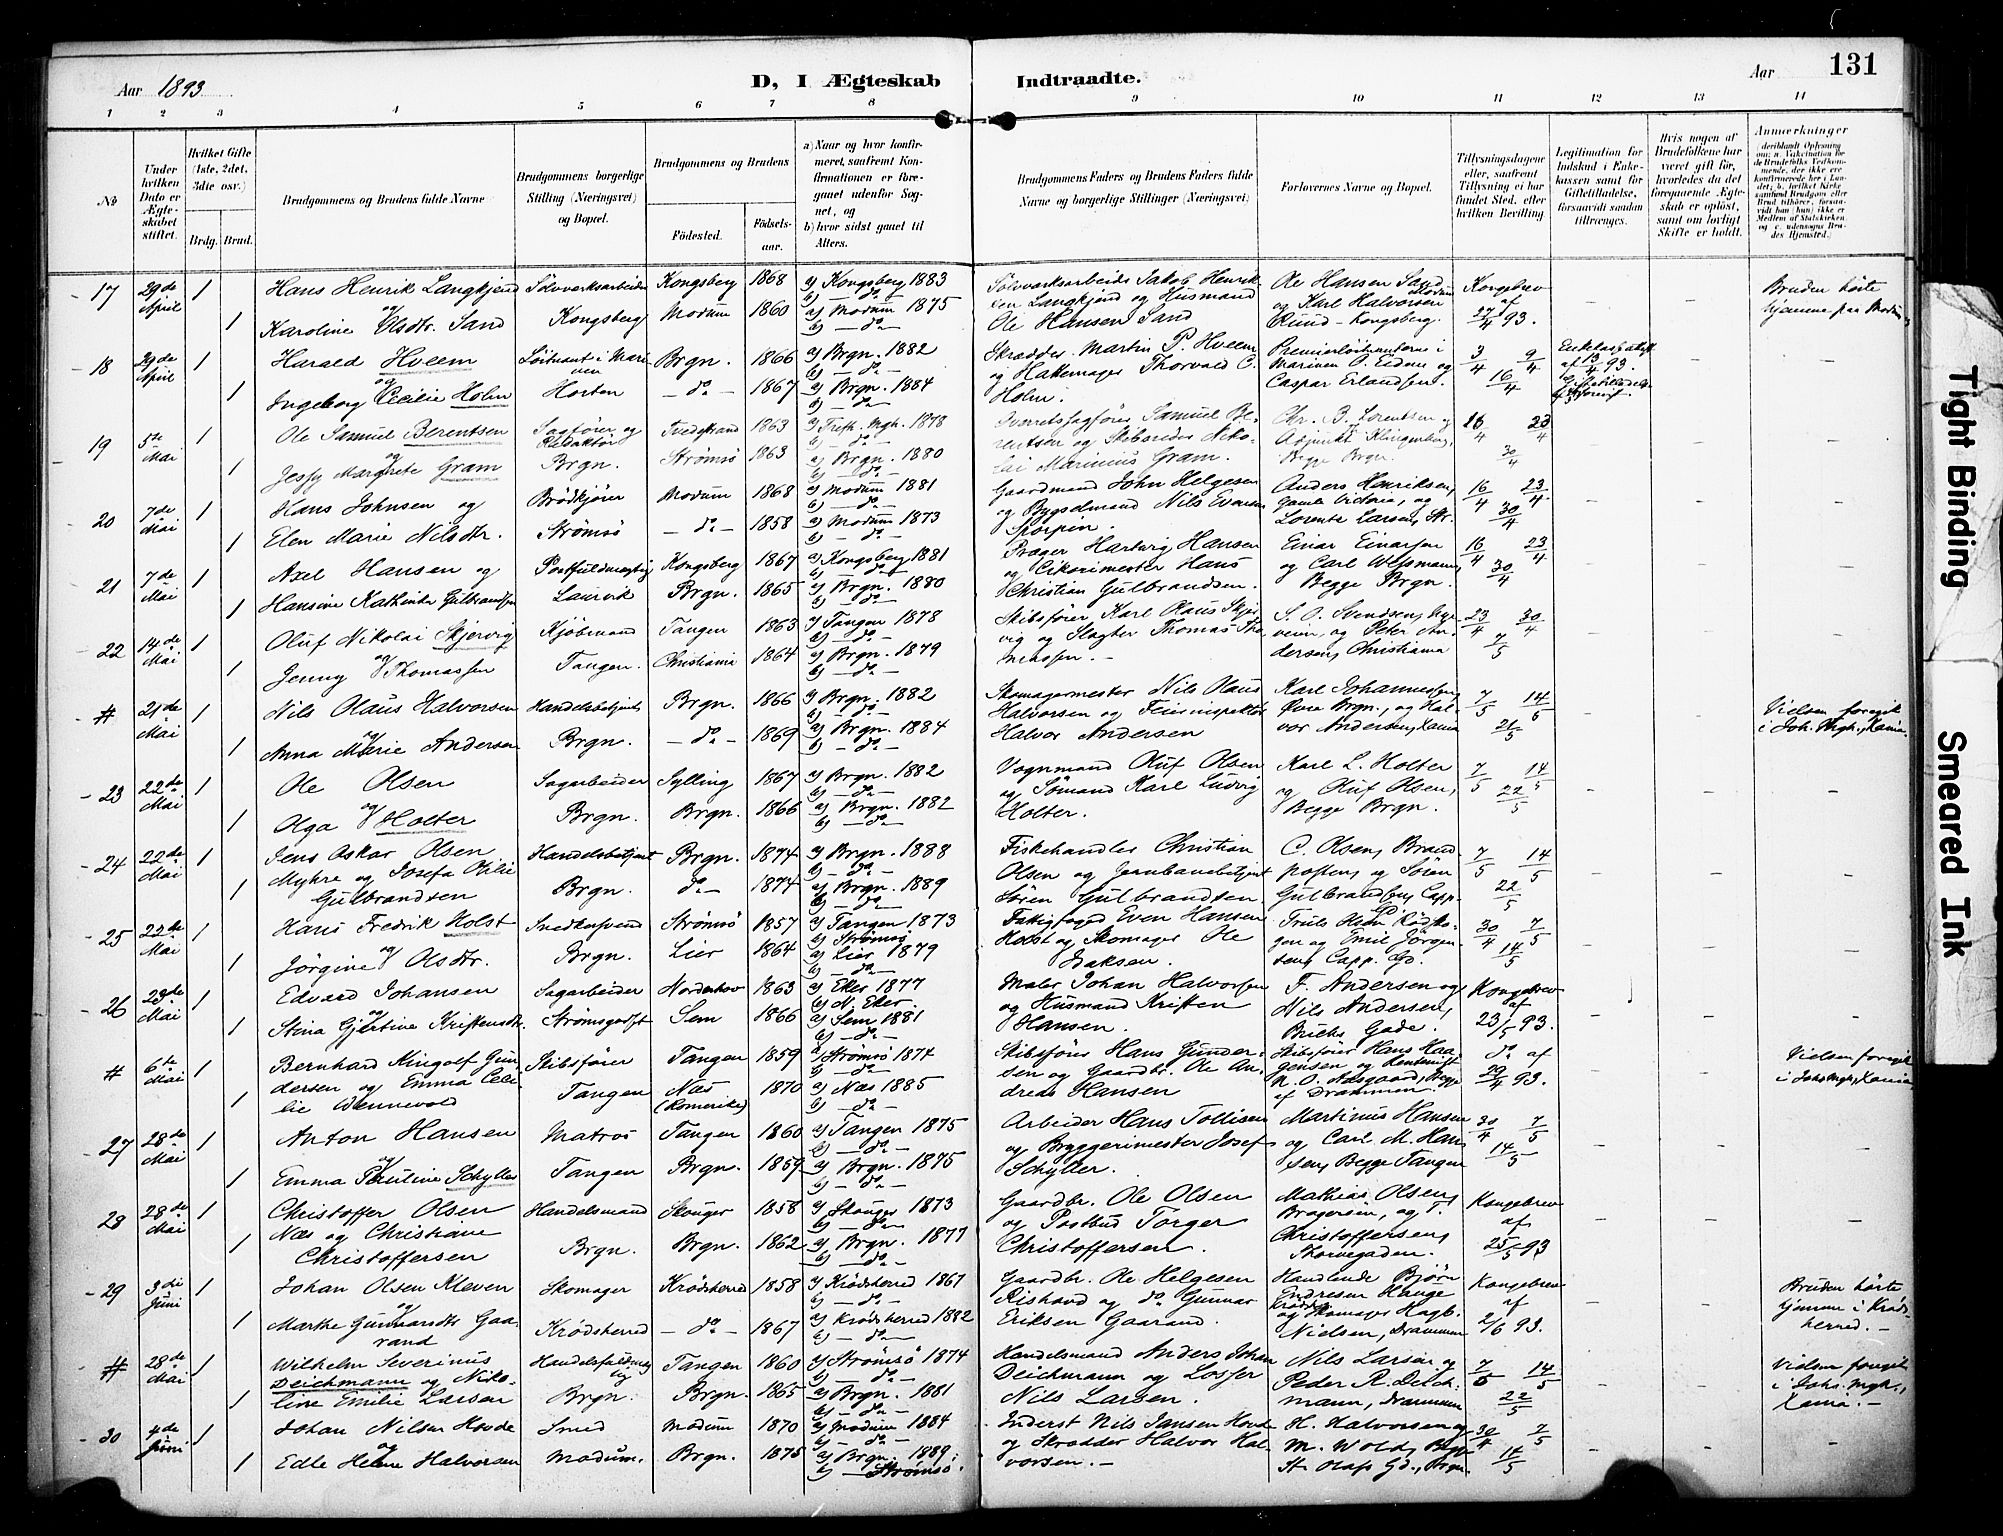 Aar 1893
D, I Ægteskab Indtraadte.
Aar 131
1 2 3 4 5 6 7 8 9 10 11 12 13 14
№
Under hvilken Dato er Ægteskabet stiftet.
Hvilket Gifte (1ste, 2det, 3die osv.)
Brdg. Brud.
Brudgommens og Brudens fulde Navne
Brudgommens borgerlige Stilling (Næringsvei) og Bopæl.
Brudgommens og Brudens
Fødested. Fødselsaar.
a) Naar og hvor konfirmeret, saafremt Konfirmationen er foregaaet udenfor Sognet, og
b) hvor sidst gaaet til Alters.
Brudgommens Faders og Brudens Faders fulde Navne og borgerlige Stillinger (Næringsvei)
Forlovernes Navne og Bopæl.
Tillysningsdagene eller, saafremt Tillysning ei har fundet Sted, efter hvilken Bevilling
Legitimation for Indskud i Enkekassen samt for Giftetilladelse, forsaavidt saadan tiltrænges.
Hvis nogen af Brudefolkene har været gift før, hvorledes da det foregaaende Ægteskab er opløst, samt om lovligt Skifte er holdt.
Anmerkninger
17 29de April 1 Hans Henrik Langkjend Sølvverksarbeider Kongsberg 1868 a) Kongsberg 1883 b) — do — Sølvverksarbeider Jakob Henriksen Langkjend og Husmand Ole Hansen Sand Ole Hansen Sand Modum og Karl Halvorsen Rund - Kongsberg. Kongebrev af 27/4 93. Bruden hørte hjemme paa Modum
1 og Karoline Olsdtr. Sand Kongsberg Modum 1860 a) Modum 1875 b) — do —
18 29de April 1 Harald Hveem Løitnant i Marinen Brgn. 1866 a) Brgn. 1882 b) — do — Skrædder Martin P. Hveem og Hattemager Thorvald C. Holm. Premierløitnanterne i Marinen O. Eidem og Caspar Erlandsen. 3/4 9/4 16/4
1 og Ingeborg Cecilie Holm Horten — do — 1867 a) Brgn. 1884 b) — do —
19 5te Mai 1 Ole Samuel Berentsen Sagfører og Redaktør Tvedestrand 1863 a) Trefk. Mgh. 1878 b) — do — Overretssagfører Samuel Berentsen og Skibsreder Nikolai Marinius Gram. Chr. B. Lorentsen og Adjunkt Klingenberg, Begge Brgn. 16/4 23/4 30/4
1 og Jessy Margrete Gram Brgn. Strømsø 1863 a) Brgn. 1880 b) — do —
20 7de Mai 1 Hans Johnsen og Brødkjører Modum 1868 a) Modum 1881 b) — do — Gaardmand John Helgesen og Bygselmand Nils Evensen Anders Henriksen, Gamle Victoria, og Lorents Larsen, Str. 16/4 23/4 30/4
1 Elen Marie Nilsdtr. Strømsø — do — 1858 a) Modum 1873 b) — do —
21 7de Mai 1 Axel Hansen og Postfuldmægtig Kongsberg 1867 a) Kongsberg 1881 b) — do — Præger Hartvig Hansen og Cikorimester Hans Christian Gulbrandsen. Einar Einarsen og Carl Wessmann, Begge Brgn. 16/4 23/4 30/4
1 Hansine Kathinka Gulbrandsen Laurvik Brgn. 1865 a) Brgn. 1880 b) — do —
22 14de Mai 1 Oluf Nikolai Skjervig Kjøbmand Tangen 1863 a) Tangen 1878 b) — do — Skibsfører Karl Olaus Skjervig og Slagter Thomas Thomassen. — S. O. Svendsen, og Peter Andersen, Christiania 23/4 30/4 7/5
1 og Jenny Thomassen Tangen. Christiania 1864 a) Brgn. 1879 b) — do —
# 21de Mai 1 Nils Olaus Halvorsen Handelsbetjent Brgn. 1866 a) Brgn. 1882 b) — do — Skomagermester Nils Olaus Halvorsen og Feierinspektør Halvor Andersen Karl Johannesen, Øvre Brgn., og Halvor Andersen, Xania 7/5 14/5 21/5 Vielsen foregik i Joh. Mgh., Xania.
1 og Anna Marie Andersen Brgn. — do — 1869 a) Brgn. 1884 b) — do —
23 22de Mai 1 Ole Olsen Sagarbeider Sylling 1867 a) Brgn. 1882 b) — do — Vognmand Oluf Olsen og Sømand Karl Ludvig Holter. Karl L. Holter og Oluf Olsen, Begge Brgn. 7/5 14/5 22/5
1 og Olga Holter Brgn. Brgn. 1866 a) Brgn. 1882 b) — do —
24 22de Mai 1 Jens Oskar Olsen Myhre og Josefa Oilie Gulbrandsen Handelsbetjent Brgn. 1874 a) Brgn. 1888 b) — do — Fiskehandler Christian Olsen og Jernbanebetjent Søren Gulbrandsen C. Olsen, Brandposten, og Søren Gulbrandsen, Capp. 7/5 14/5 22/5
1 Brgn. do — 1874 a) Brgn. 1889 b) — do —
25 22de Mai 1 Hans Fredrik Holst Snedkersvend Strømsø 1857 a) Tangen 1873 b) Strømsø Fattigfoged Even Hansen Holst og Skomager Ole Isaksen. Truls Olsen Rødskogen og Emil Jørgensen, Capp. Gd. 30/4 7/5 14/5
1 og Jørgine Olsdtr. Brgn. Lier 1864 a) Lier 1879 b) — do —
26 23de Mai 1 Edvard Johansen Sagarbeider Norderhov 1863 a) Eker 1877 b) N. Eker. Maler Johan Halvorsen og Husmand Kristen Hansen. F. Andersen og Nils Andersen, Bruchs Gade. Kongebrev af 23/5 93.
1 og Stina Gjertine Kristensdtr. Strømsgodset Sem 1866 a) Sem 1881 b) — do —
# 6te Mai 1 Bernhard Ringolf Gundersen og Emma Cecilie Wennevold Skibsfører Tangen 1859 a) Strømsø 1874 b) — do — Skibsfører Hans Gundersen og Gaardbr. Ole Andreas Hansen Skibsfører Hans Haagensen og N. O. Aasgaard, Begge af Drammen. do af 29/4 93. Vielsen foregik i Johs. Mgh., Xania
1 Tangen Næs (Romerike) 1870 a) Næs 1885 b) — do —
27 28de Mai 1 Anton Hansen Matros Tangen 1860 a) Tangen 1875 b) — do — Arbeider Hans Tollisen og Bryggerimester Josef Schyller. Martinus Hansen og Carl M. Hansen, Begge Tangen 30/4 7/5 14/5
1 og Emma Pauline Schyller Tangen Brgn. 1859 a) Brgn. 1875 b) — do —
28 28de Mai 1 Christoffer Olsen Næs og Christiane Christoffersen Handelsmand Skouger 1858 a) Skouger 1873 b) — do — Gaardbr. Ole Olsen og Postbud Torger Christoffersen. Mathias Olsen, Bragersøen, og T. Christoffersen, Thorvegaden. Kongebrev af 25/5 93
1 Brgn. Brgn. 1862 a) Brgn. 1877 b) — do —
29 3die Juni 1 Johan Olsen Kleven Skomager Krødsherred 1858 a) Krødsherred 1867 b) — do — Gaardbr. Ole Helgesen Rishavd og do Gunnar Eriksen Gaarand. Handlende Bjørn Endresen Hauge Krødsh. og Skomager Hagb. Nielsen, Drammen Kongebrev af 2/6 93. Bruden hørte hjemme i Krødsherred. —
1 og Marthe Gunnarsdtr Gaarand Krødsherred — do — 1867 a) Krødsherred 1882 b) — do —
# 28de Mai 1 Wilhelm Severinus Deichmann og Nikoline Emilie Larsen Handelsfuldmægtig Tangen 1860 a) Strømsø 1874 b) — do — Handelsmand Anders Johan Deichmann og Losser Nils Larsen. Nils Larsen og Peder R. Deichmann, Drammen 7/5 14/5 22/5 Vielsen foregik i Johs. Mgh., Xania. —
1 Brgn. Brgn. 1865 a) Brgn. 1881 b) — do —
30 4de Juni 1 Johan Nilsen Hovde Smed Modum 1870 a) Modum 1884 b) — do — Inderst Nils Jansen Hovde og Skrædder Halvor Halvorsen. — H. Halvorsen og M. Wold, Begge St. Olafs Gd., Brgn. 30/4 7/5 14/5
1 og Edle Helene Halvorsen Modum. Brgn. 1875 a) Brgn. 1889. b) — Strømsø.
Tight Binding
Smeared Ink